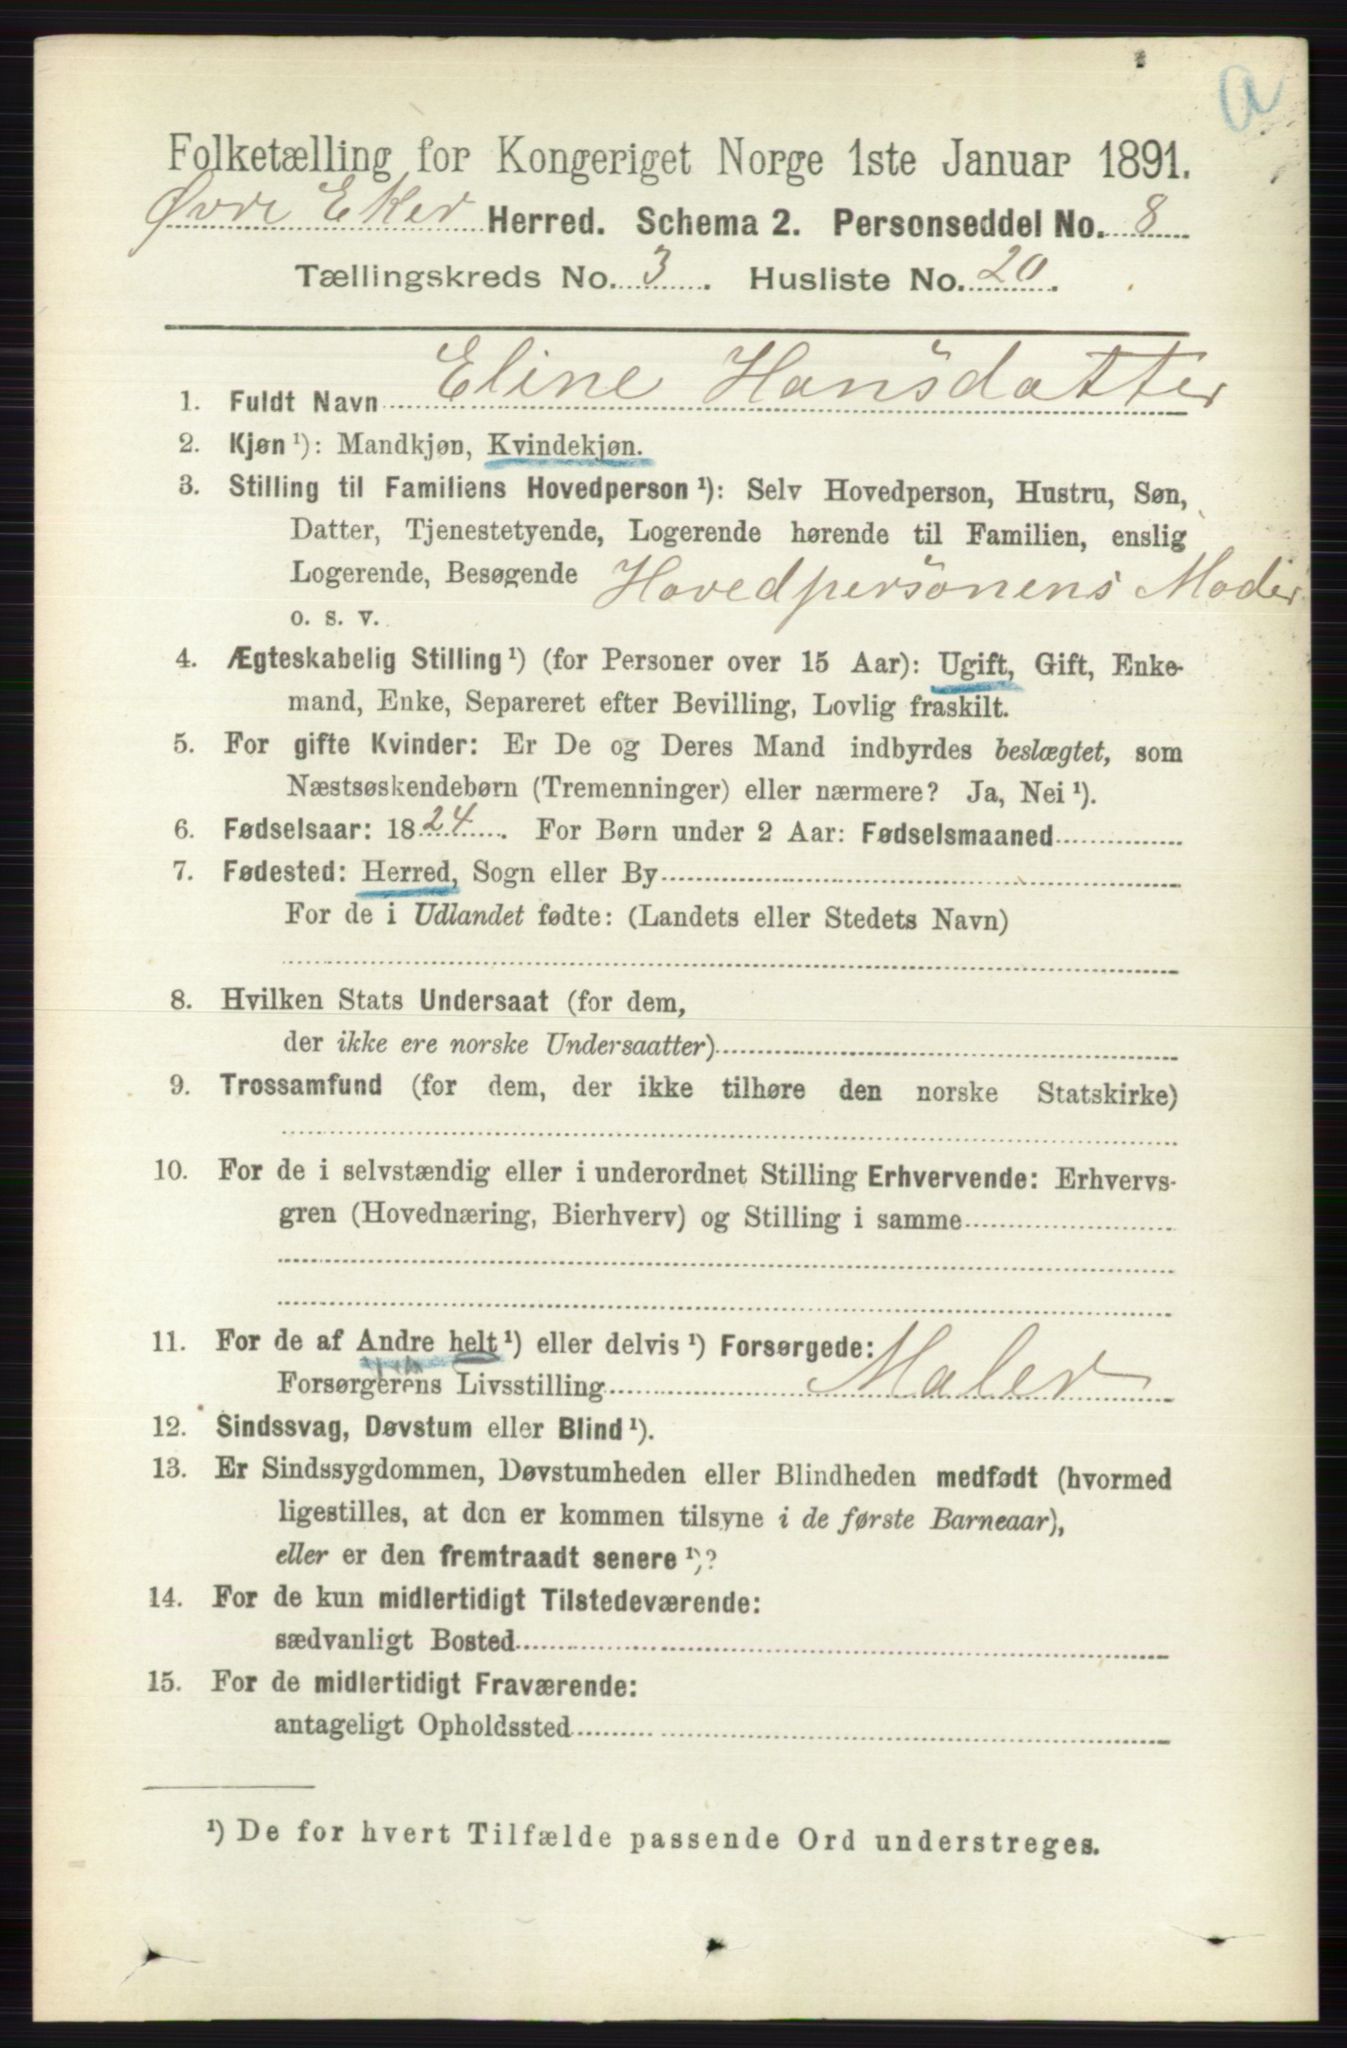 a
Folketælling for Kongeriget Norge 1ste Januar 1891.
Øvre Eker Herred. Schema 2. Personseddel No. 8
Tællingskreds No. 3. Husliste No. 20.
1. Fuldt Navn Eline Hansdatter
2. Kjøn ¹): Mandkjøn, Kvindekjøn.
3. Stilling til Familiens Hovedperson ¹): Selv Hovedperson, Hustru, Søn,
Datter, Tjenestetyende, Logerende hørende til Familien, enslig
Logerende, Besøgende Hovedpersonens Moder
o. s. v.
4. Ægteskabelig Stilling ¹) (for Personer over 15 Aar): Ugift, Gift, Enke-
mand, Enke, Separeret efter Bevilling, Lovlig fraskilt.
5. For gifte Kvinder: Er De og Deres Mand indbyrdes beslægtet, som
Næstsøskendebørn (Tremenninger) eller nærmere? Ja, Nei ¹).
6. Fødselsaar: 1824. For Børn under 2 Aar: Fødselsmaaned
7. Fødested: Herred, Sogn eller By
For de i Udlandet fødte: (Landets eller Stedets Navn)
8. Hvilken Stats Undersaat (for dem,
der ikke ere norske Undersaatter)
9. Trossamfund (for dem, der ikke tilhøre den norske Statskirke)
10. For de i selvstændig eller i underordnet Stilling Erhvervende: Erhvervs-
gren (Hovednæring, Bierhverv) og Stilling i samme
11. For de af Andre helt ¹) eller delvis ¹) Forsørgede:
Forsørgerens Livsstilling Maler
12. Sindssvag, Døvstum eller Blind ¹).
13. Er Sindssygdommen, Døvstumheden eller Blindheden medfødt (hvormed
ligestilles, at den er kommen tilsyne i de første Barneaar),
eller er den fremtraadt senere ¹)?
14. For de kun midlertidigt Tilstedeværende:
sædvanligt Bosted
15. For de midlertidigt Fraværende:
antageligt Opholdssted
¹) De for hvert Tilfælde passende Ord understreges.